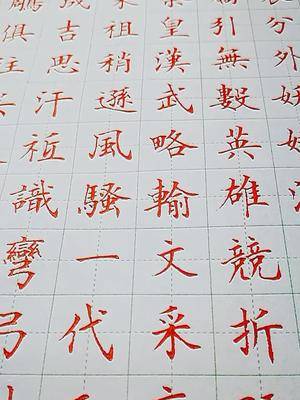 分外
引無數英雄競折
皇漢武略輸文采
祖稍遜風騷一代
成吉思汗祗識彎弓
鵰俱往